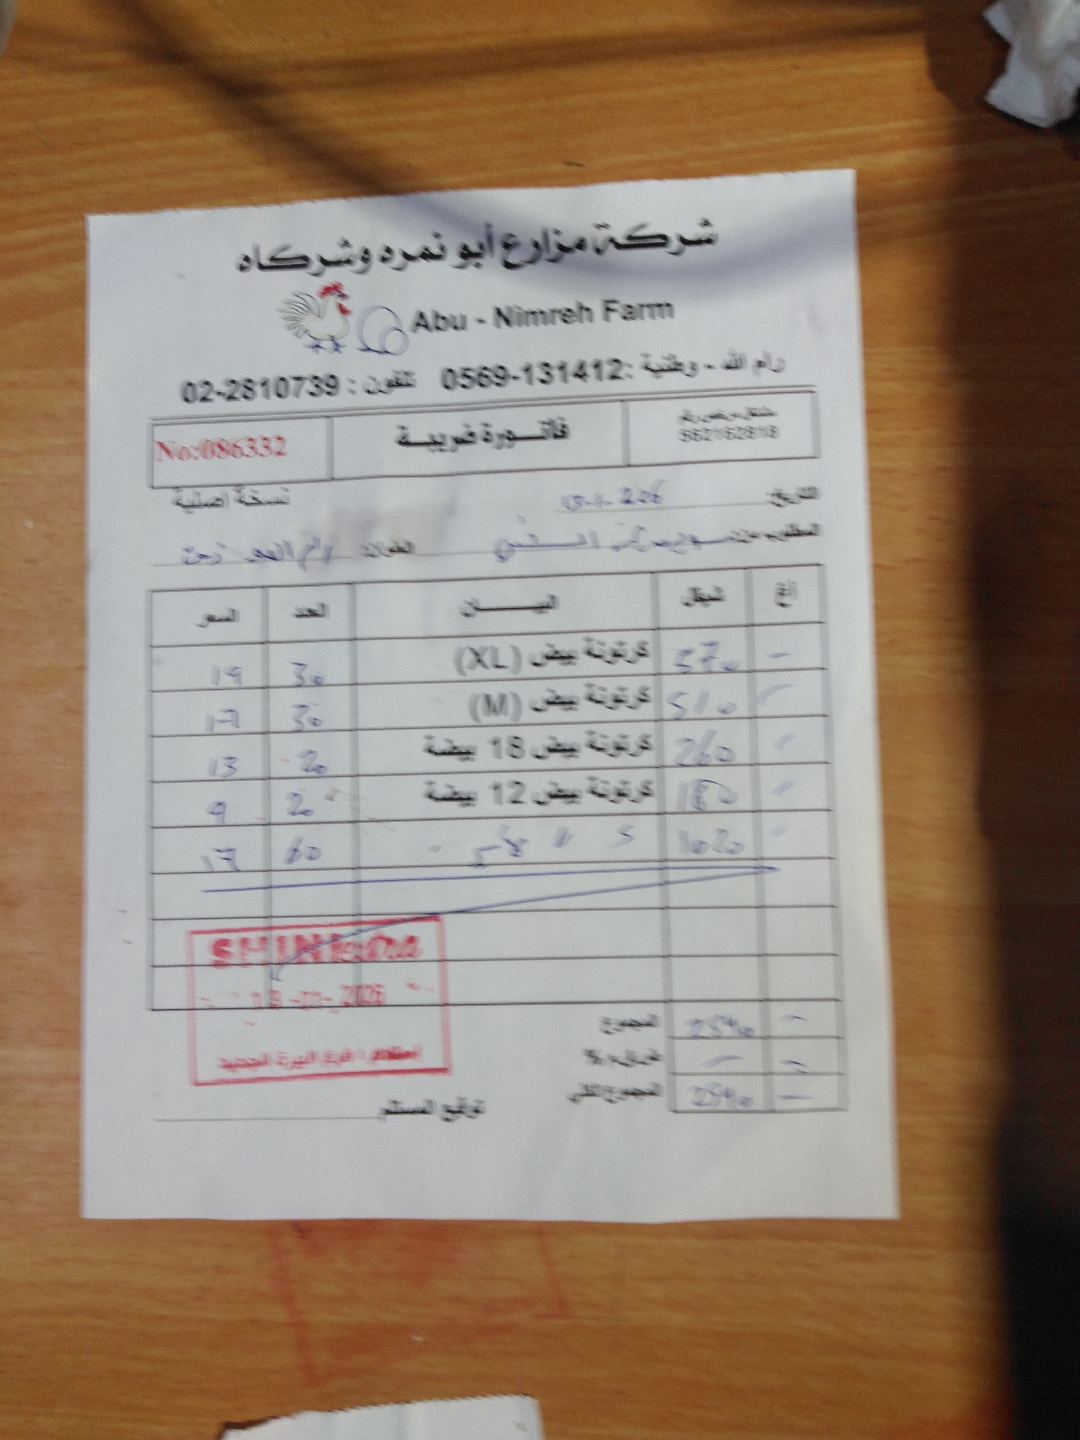 شركة مزارع أبو نمره وشركاه
Abu - Nimreh Farm
رام الله - وطنية :0569-131412 تلفون : 02-2810739
مشتغل مرخص رقم
فاتورة ضريبة
No:086332
562162818
نسخة اصلية
التاريخ:
المطلوب من: العنوان: رام الله
أغ شيقل البيان العدد السعر
- 570 كرتونة بيض (XL) 30 19
510 كرتونة بيض (M) 30 17
260 كرتونة بيض 18 بيضة 20 13
180 كرتونة بيض 12 بيضة 20 9
1020 60 17
SHINI
-01- 2026
استلام / فرع البيرة الجديد
المجموع 2540 -
%
المجموع الكلي 2540 -
توقيع المستلم